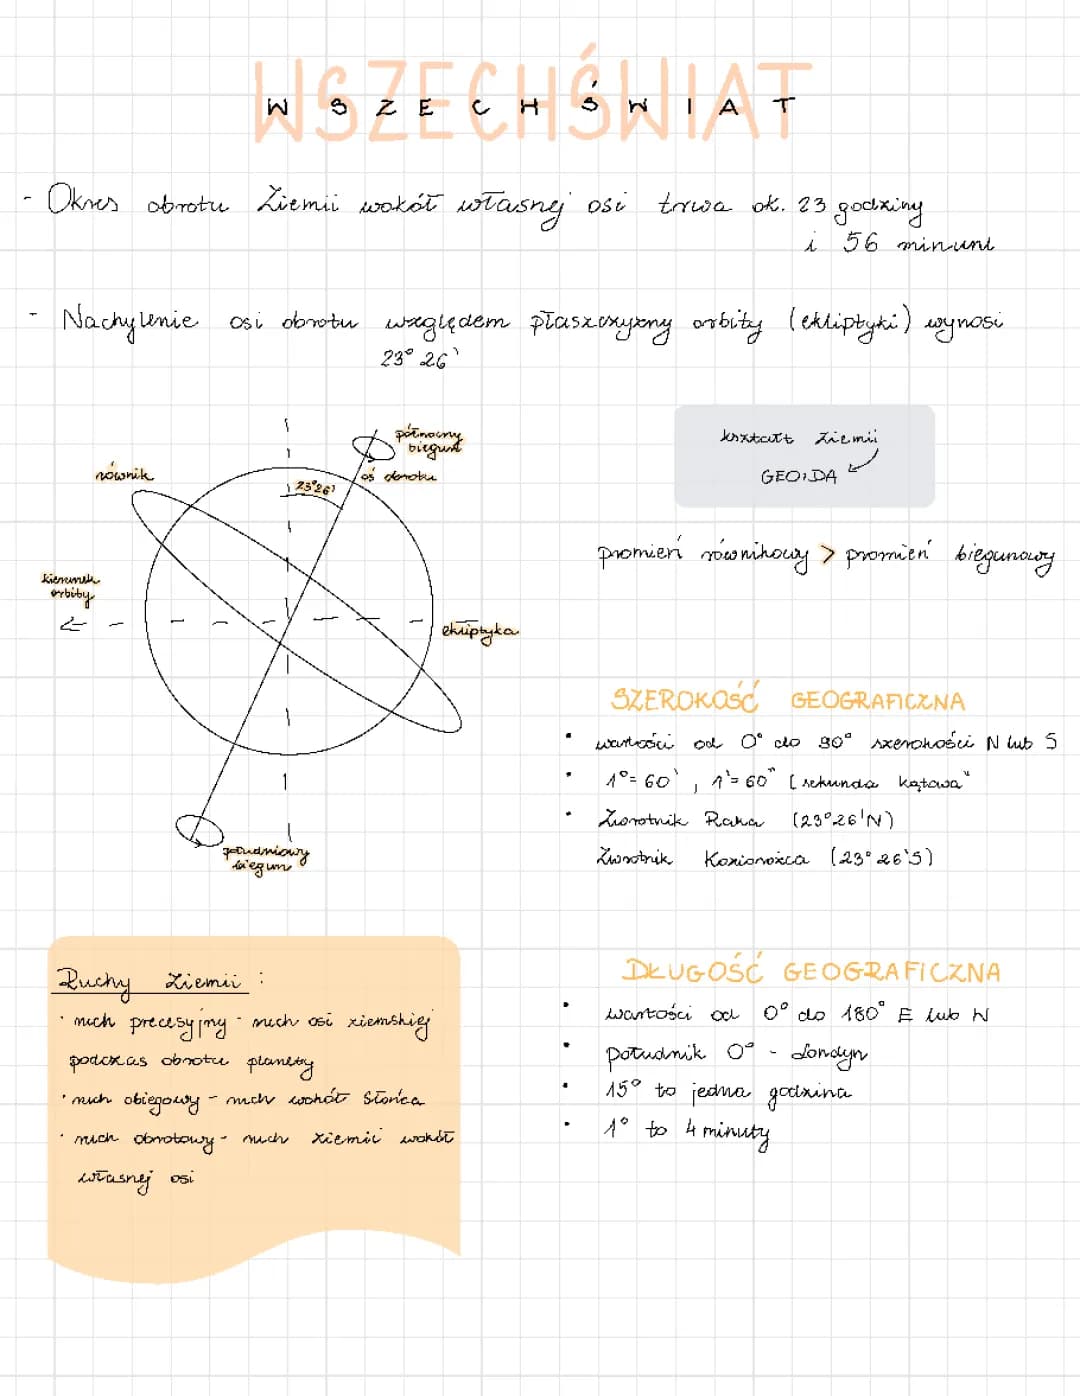 WSZECHŚWIAT
W S Z E C H Ś W I A T
- Okres obrotu Ziemii wokół własnej osi trwa ok. 23 godziny
i 56 minunt
- Nachylenie osi obrotu względem płaszczyzny orbity (ekliptyki) wynosi
23° 26'
północny
biegun
oś obrotu
23°26'
równik
kierunek
orbity
ekliptyka
południowy
biegun
kształt Ziemii
GEOIDA
promień równikowy > promień biegunowy
SZEROKOŚĆ GEOGRAFICZNA
• wartości od 0° do 90° szerokości N lub S
• 1°= 60' , 1'= 60" [sekunda kątowa"
• Zwrotnik Raka (23°26'N)
Zwrotnik Koziorożca (23°26'S)
Ruchy Ziemii :
· ruch precesyjny - ruch osi ziemskiej
podczas obrotu planety
· ruch obiegowy - ruch wokół Słońca
· ruch obrotowy - ruch ziemii wokół
własnej osi
DŁUGOŚĆ GEOGRAFICZNA
• wartości od 0° do 180° E lub W
• południk 0° - Londyn
• 15° to jedna godzina
• 1° to 4 minuty